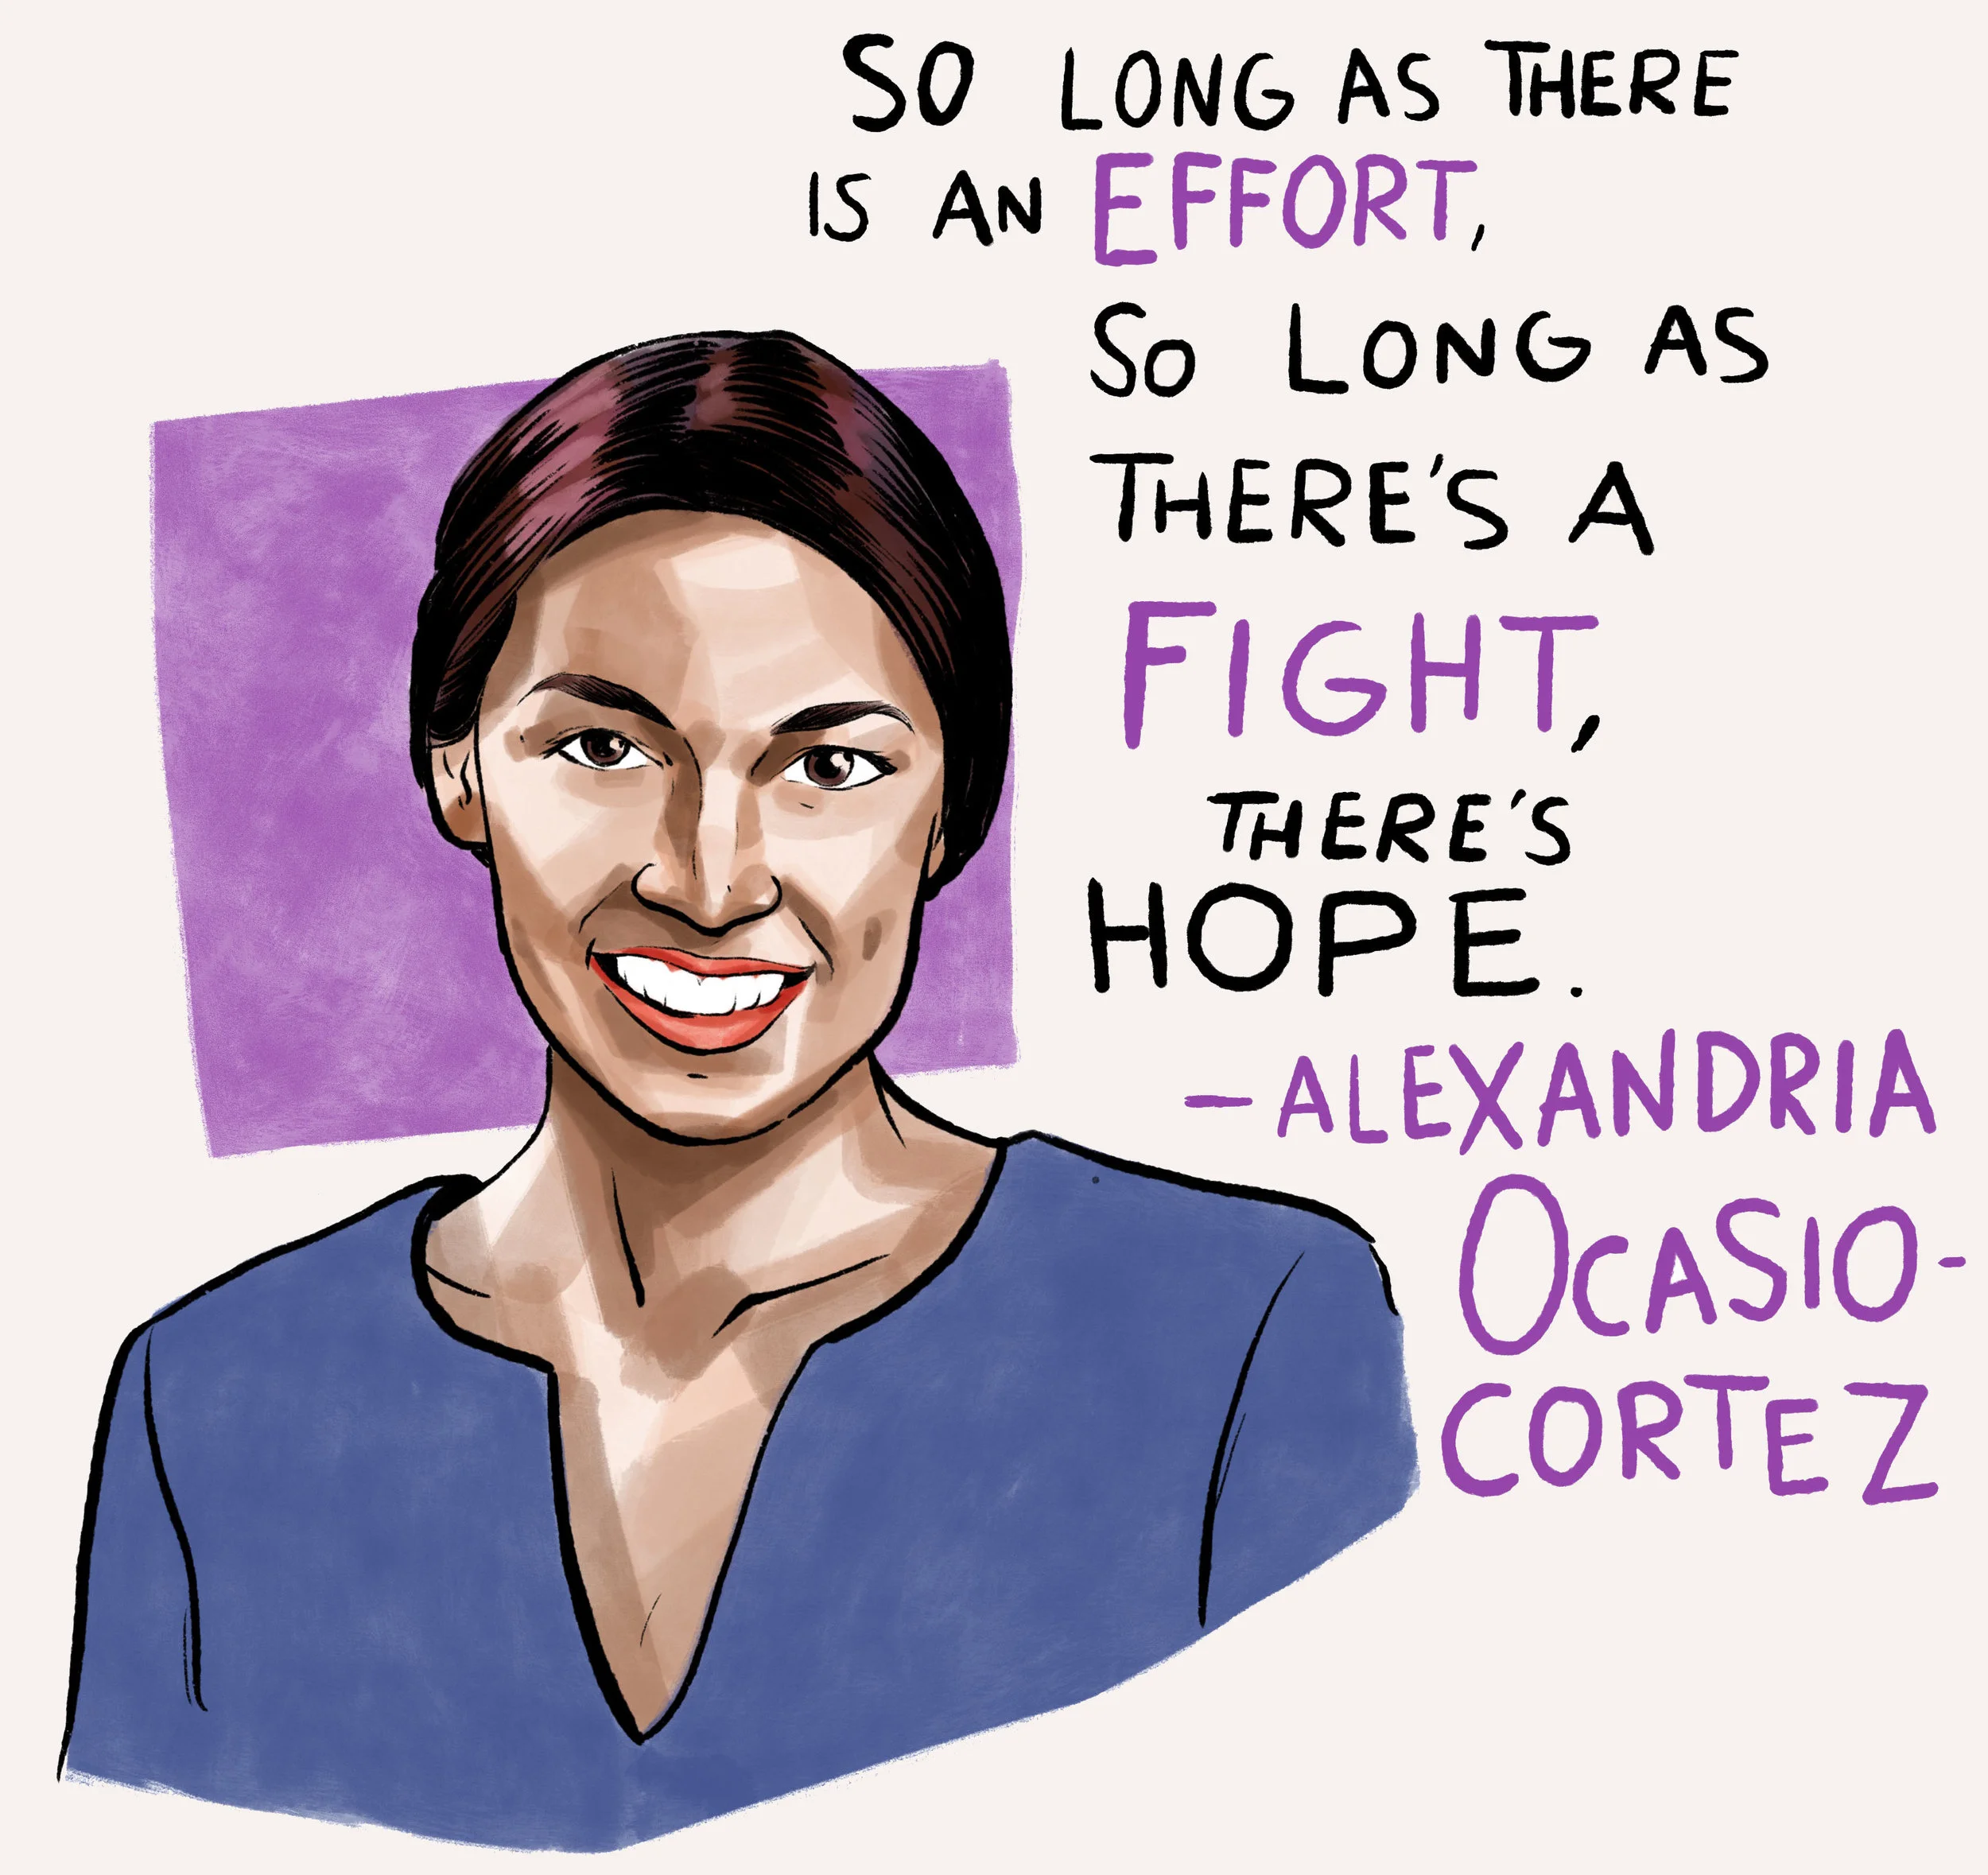 SO LONG AS THERE
IS AN EFFORT,
SO LONG AS
THERE'S A
FIGHT,
THERE'S
HOPE.
—ALEXANDRIA
OCASIO-
CORTEZ